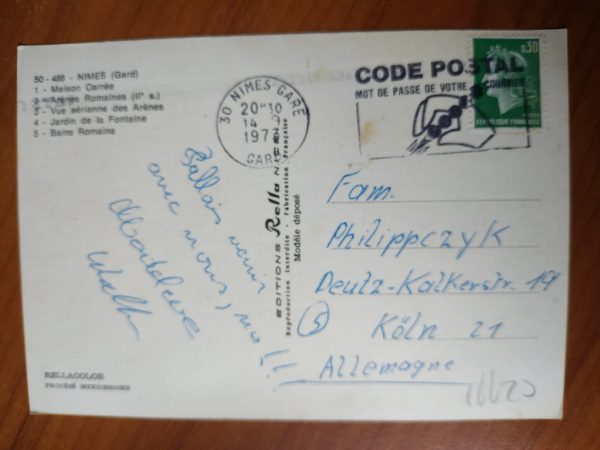 50 - 488 - NIMES (Gard)
1 - Maison Carrée
2 - Arènes Romaines (IIe s.)
3 - Vue aérienne des Arènes
4 - Jardin de la Fontaine
5 - Bains Romains
30 NIMES GARE
20H30
14
197
GARD
CODE POSTAL
MOT DE PASSE DE VOTRE COURRIER
0,30
REPUBLIQUE FRANÇAISE
EDITIONS Rella
Reproduction Interdite - Fabrication Française
Modèle déposé
Fallais venir
avec nous, na!!
Madeleine
Fam.
Philippczyk
Deutz-Kalkerstr. 19
5
Köln 21
Allemagne
RELLACOLOR
PROCÉDÉ MEXICHROME